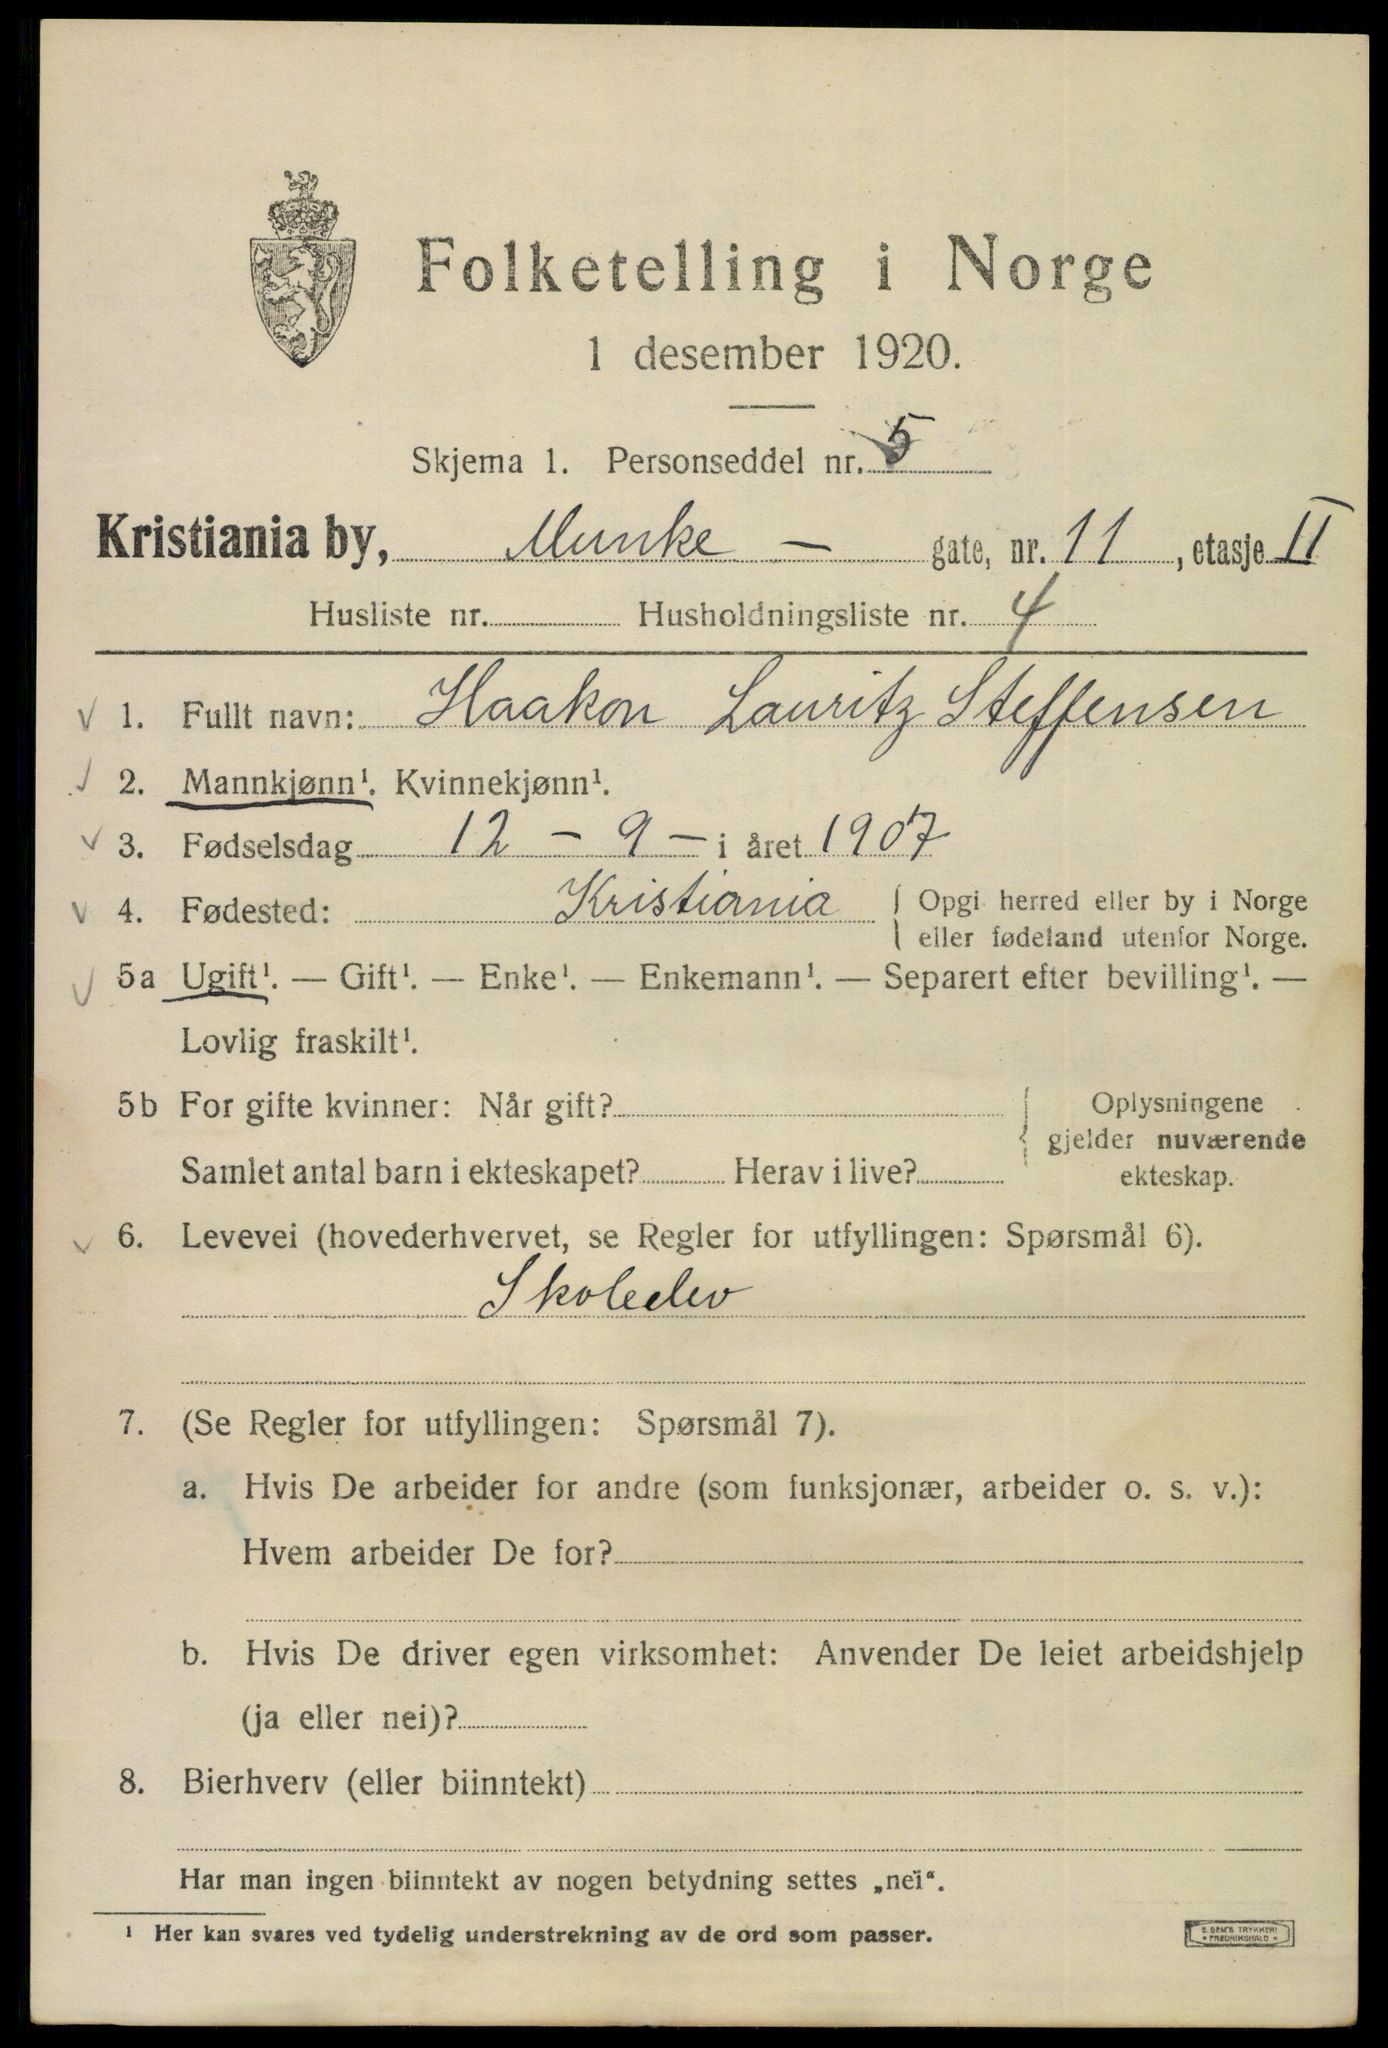 Folketelling i Norge
1 desember 1920.
Skjema 1. Personseddel nr. 5
Kristiania by, Munke — gate, nr. 11, etasje II
Husliste nr. Husholdningsliste nr. 4
1. Fullt navn: Haakon Lauritz Steffensen
2. Mannkjønn¹. Kvinnekjønn¹.
3. Fødselsdag 12 – 9 – i året 1907
4. Fødested: Kristiania { Opgi herred eller by i Norge
eller fødeland utenfor Norge.
5a Ugift¹. — Gift¹. — Enke¹. — Enkemann¹. — Separert efter bevilling¹. —
Lovlig fraskilt¹.
5b For gifte kvinner: Når gift?
Samlet antal barn i ekteskapet? Herav i live?
{ Oplysningene
gjelder nuværende
ekteskap.
6. Levevei (hovederhvervet, se Regler for utfyllingen: Spørsmål 6).
Skoleelev
7. (Se Regler for utfyllingen: Spørsmål 7).
a. Hvis De arbeider for andre (som funksjonær, arbeider o. s. v.):
Hvem arbeider De for?
b. Hvis De driver egen virksomhet: Anvender De leiet arbeidshjelp
(ja eller nei)?
8. Bierhverv (eller biinntekt)
Har man ingen biinntekt av nogen betydning settes „nei“.
¹ Her kan svares ved tydelig understrekning av de ord som passer.
E. SEM'S TRYKKERI
• FREDRIKSHALD •